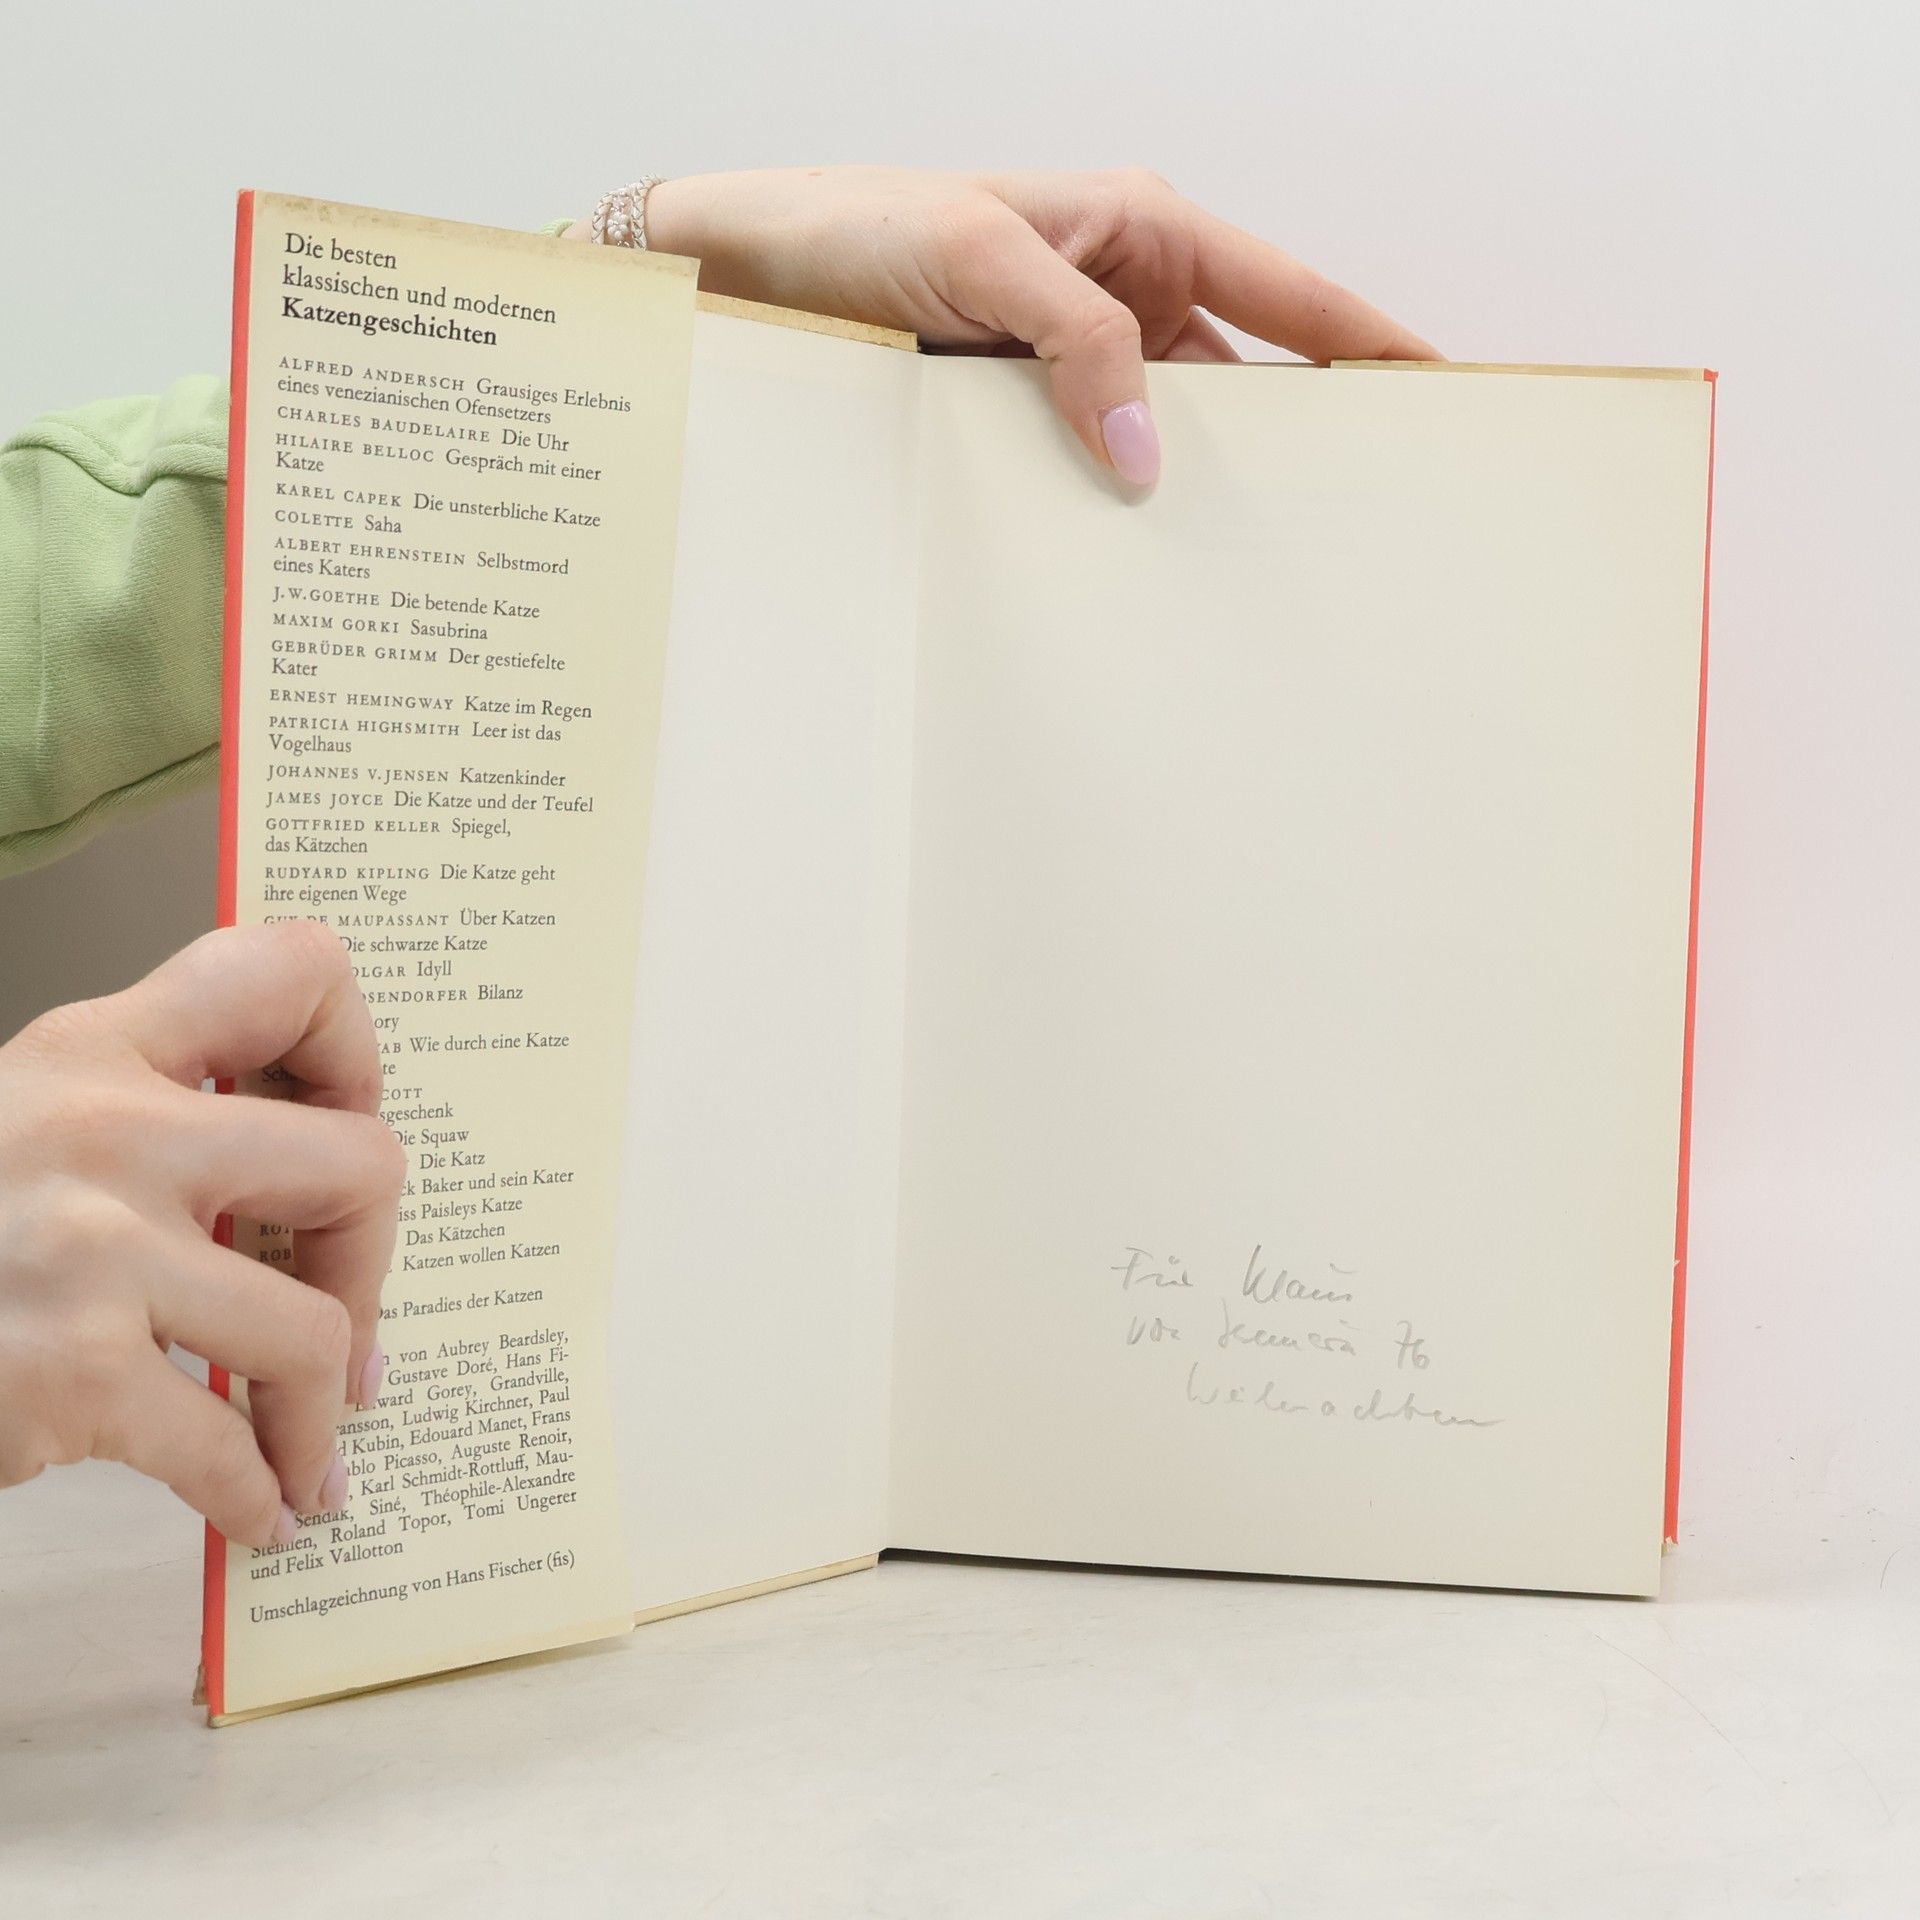 Die besten
klassischen und modernen
Katzengeschichten
ALFRED ANDERSCH Grausiges Erlebnis
eines venezianischen Ofensetzers
CHARLES BAUDELAIRE Die Uhr
HILAIRE BELLOC Gespräch mit einer
Katze
KAREL CAPEK Die unsterbliche Katze
COLETTE Saha
ALBERT EHRENSTEIN Selbstmord
eines Katers
J.W.GOETHE Die betende Katze
MAXIM GORKI Sasubrina
GEBRÜDER GRIMM Der gestiefelte
Kater
ERNEST HEMINGWAY Katze im Regen
PATRICIA HIGHSMITH Leer ist das
Vogelhaus
JOHANNES V. JENSEN Katzenkinder
JAMES JOYCE Die Katze und der Teufel
GOTTFRIED KELLER Spiegel,
das Kätzchen
RUDYARD KIPLING Die Katze geht
ihre eigenen Wege
GUY DE MAUPASSANT Über Katzen
Die schwarze Katze
OLGAR Idyll
OSENDORFER Bilanz
ory
AB Wie durch eine Katze
te
COTT
sgeschenk
Die Squaw
Die Katz
ck Baker und sein Kater
iss Paisleys Katze
ROT Das Kätzchen
ROB Katzen wollen Katzen
Das Paradies der Katzen
n von Aubrey Beardsley,
Gustave Doré, Hans Fi-
ward Gorey, Grandville,
ansson, Ludwig Kirchner, Paul
d Kubin, Edouard Manet, Frans
ablo Picasso, Auguste Renoir,
, Karl Schmidt-Rottluff, Mau-
Sendak, Siné, Théophile-Alexandre
Steinlen, Roland Topor, Tomi Ungerer
und Felix Vallotton
Umschlagzeichnung von Hans Fischer (fis)
Für Klaus
von 76
Weihnachten